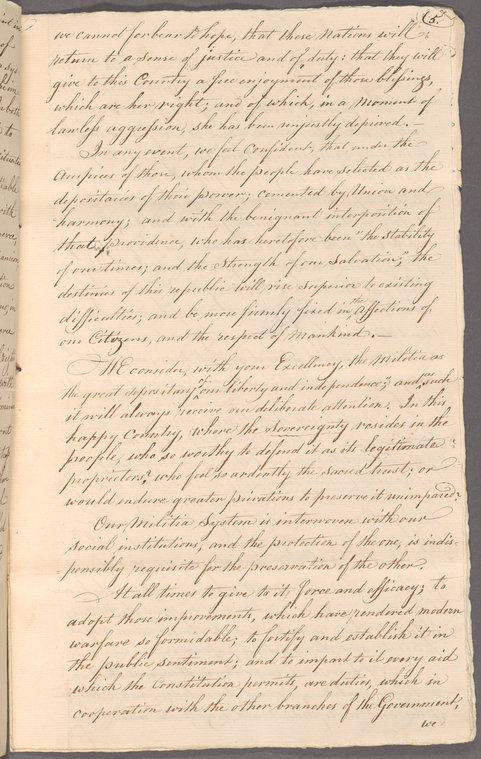 5.
we cannot forbear to hope, that these Nations will
return to a sense of justice and of duty: that they will
give to this Country a free enjoyment of those blessings,
which are her right; and of which, in a Moment of
lawless aggression, she has been unjustly deprived.—
In any event, we feel confident, that under the
Auspices of those, whom the people have selected as the
depositaries of their power; cemented by Union and
harmony; and with the benignant interposition of
that Providence, who has heretofore been "the stability
of our times; and the strength of our Salvation; the
destinies of this republic will rise superior to existing
difficulties; and be more firmly fixed in the affections of
our Citizens, and the respect of Mankind.—
WE consider, with your Excellency, the Militia as
the great depositary of our liberty and independence; and, as such
it will always receive our deliberate attention. In this
happy Country, where the sovereignty resides in the
people, who so worthy to defend it as its legitimate
proprietors? who feel so ardently the sacred trust; or
would endure greater privations to preserve it unimpaired?
Our Militia System is interwoven with our
social institutions; and the protection of the one, is indis-
pensibly requisite for the preservation of the other.
At all times to give to it, force and efficacy; to
adopt those improvements, which have rendered modern
warfare so formidable; to fortify and establish it in
the public sentiment; and to impart to it every aid
which the Constitution permits, are duties, which in
cooperation with the other branches of the Government,
we